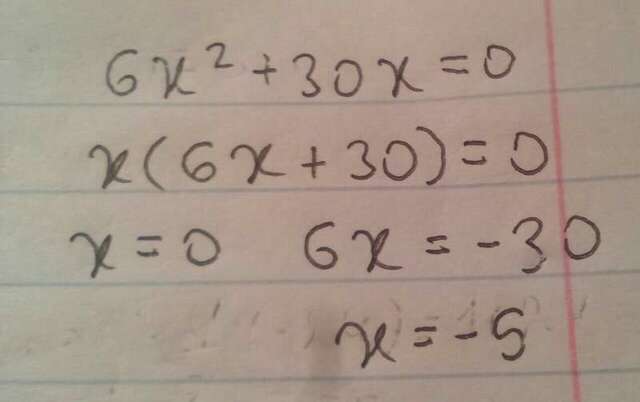 6x² + 30x = 0
x(6x + 30) = 0
x = 0 6x = -30
x = -5